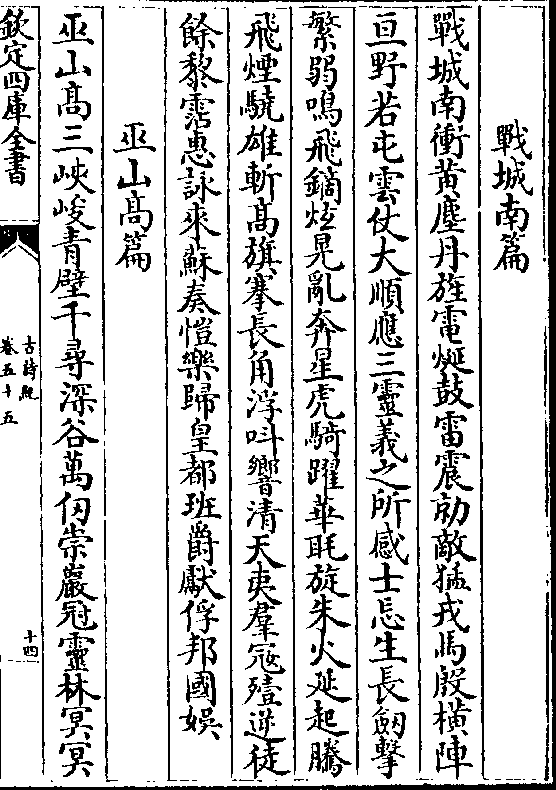 戰城南篇
戰城南衝黄塵丹旌電烻鼓雷震勍敵猛戎馬殷橫陣
亘野若屯雲仗大順應三靈義之所感士忘生長劒擊
繁弱鳴飛鏑炫晃亂奔星虎騎躍華眊旋朱火延起騰
飛煙驍雄斬高旗搴長角浮呌響清天夷羣寇殪逆徒
餘黎霑惠詠來蘇奏愷樂歸皇都班爵獻俘邦國娯
巫山髙篇
巫山髙三峽峻青壁千尋深谷萬仞崇巖冠靈林冥冥
欽定四庫全書
古詩紀
卷五十五
十四